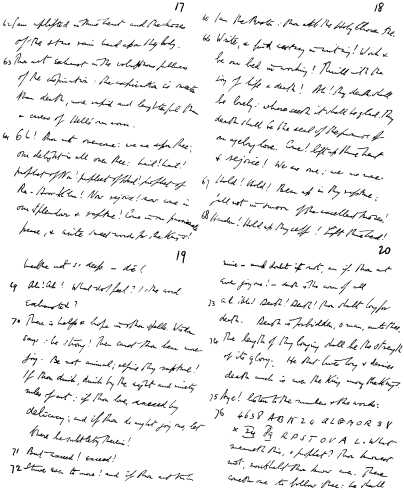 17
62 I am uplifted in thine heart and the kisses
of the stars rain hard upon thy body.
63 Thou art exhaust in the voluptuous fullness
of the inspiration: the expiration is sweeter
than death, more rapid and laughterful than
a caress of Hell's own worm.
64 Oh! thou art overcome: we are upon thee;
our delight is all over thee: hail! hail:
prophet of Nu! prophet of Had! prophet of
Ra-Hoor-Khu! Now rejoice! now come in
our splendour & rapture! Come in our passionate
peace, & write sweet words for the Kings!
18
65 I am the Master: thou art the Holy Chosen One.
66 Write, & find ecstasy in writing! Work, &
be our bed in working! Thrill with the
joy of life & death! Ah! thy death shall
be lovely: whoso seeth it shall be glad. Thy
death shall be the seal of the promise of
our agelong love. Come! lift up thine heart
& rejoice! We are one; we are none.
67 Hold! Hold! Bear up in thy rapture;
fall not in swoon of the excellent kisses!
68 Harder! Hold up thyself! Lift thine head!
19
breathe not so deep - die!
69 Ah! Ah! What do I feel? Is the word
exhausted?
70 There is help & hope in other spells. Wisdom
says: be strong! Then canst thou bear more
joy. Be not animal; refine thy rapture!
If thou drink, drink by the eight and ninety
rules of art: if thou love, exceed by
delicacy; and if thou do aught joyous, let
there be subtlety therein!
71 But exceed! exceed!
72 Strive ever to more! and if thou art truly
20
mine - and doubt it not, an if thou art
ever joyous! - death is the crown of all.
73 Ah! Ah! Death! Death! thou shalt long for
death. Death is forbidden, o man, unto thee.
74 The length of thy longing shall be the strength
of its glory. He that lives long & desires
death much is ever the King among the Kings.
75 Aye! listen to the numbers & the words:
76 4 6 3 8 A B K 2 4 A L G M O R 3 Y
X 24 89 R P S T O V A L. What
meaneth this, o prophet? Thou knowest
not; nor shalt thou know ever. There
cometh one to follow thee: he shall